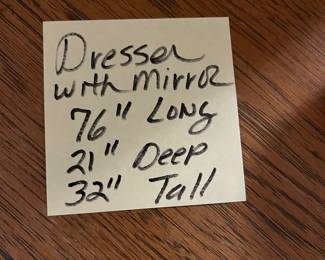 Dresser
with mirror
76" Long
21" Deep
32" Tall